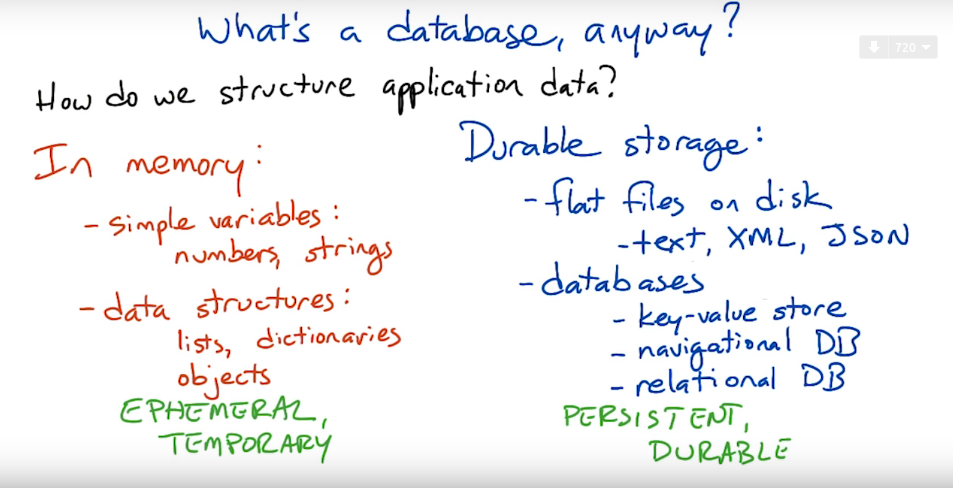 What's a database, anyway?
720
How do we structure application data?
In memory:
- simple variables:
numbers, strings
- data structures:
lists, dictionaries
objects
EPHEMERAL,
TEMPORARY
Durable storage:
- flat files on disk
- text, XML, JSON
- databases
- key-value store
- navigational DB
- relational DB
PERSISTENT,
DURABLE